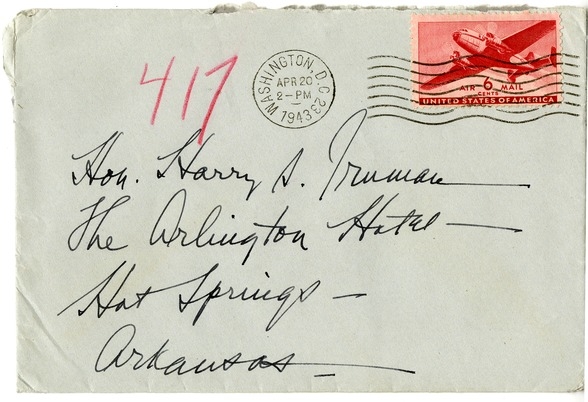 417
WASHINGTON, D.C. 23
APR 20
2-PM
1943
AIR 6 MAIL
CENTS
UNITED STATES OF AMERICA
Hon. Harry S. Truman
The Arlington Hotel—
Hot Springs—
Arkansas—